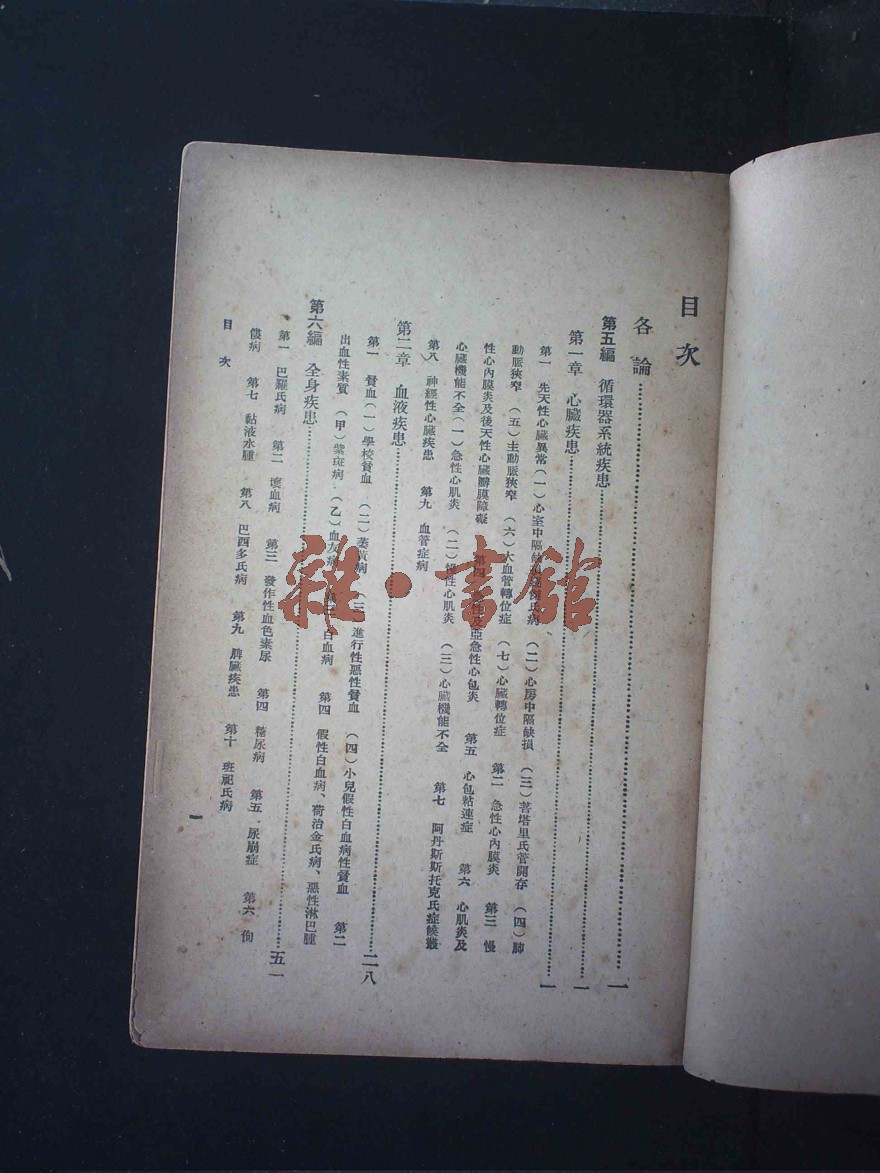 目次
各論……一
第五編 循環器系統疾患……一
第一章 心臟疾患……一
第一 先天性心臟異常(一)心室中隔缺損 氏病 (二)心房中隔缺損 (三)菩塔里氏管開存 (四)肺
動脈狹窄 (五)主動脈狹窄 (六)大血管轉位症 (七)心臟轉位症 第二 急性心內膜炎 第三 慢
性心內膜炎及後天性心臟瓣膜障礙 第四 急性及亞急性心包炎 第五 心包粘連症 第六 心肌炎及
心臟機能不全(一)急性心肌炎 (二)慢性心肌炎 (三)心臟機能不全 第七 阿丹斯斯托克氏症候叢
第八 神經性心臟疾患 第九 血管症病
第二章 血液疾患……二八
第一 貧血(一)學校貧血 (二)萎黃病 (三)進行性惡性貧血 (四)小兒假性白血病性貧血 第二
出血性素質 (甲)紫斑病 (乙)血友病 第三 白血病 第四 假性白血病、荷治金氏病、惡性淋巴腫
第六編 全身疾患……五一
第一 巴羅氏病 第二 壞血病 第三 發作性血色素尿 第四 糖尿病 第五 尿崩症 第六 佝
僂病 第七 黏液水腫 第八 巴西多氏病 第九 脾臟疾患 第十 班祀氏病
目次
一
雜·書館